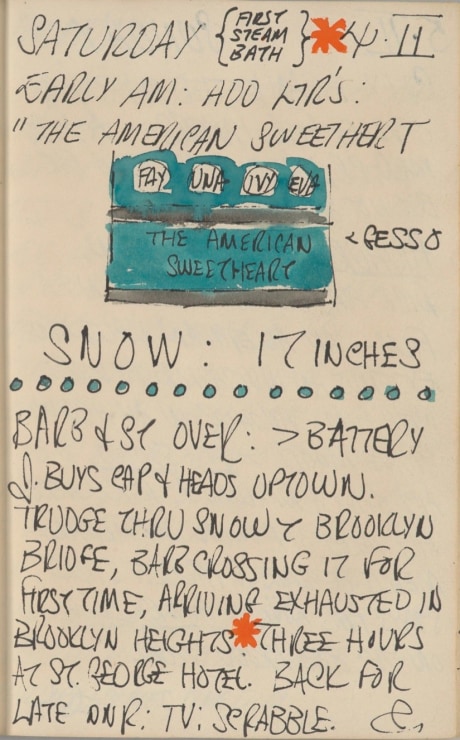 SATURDAY {FIRST STEAM BATH} 4·II
EARLY AM: ADD LTR'S:
"THE AMERICAN SWEETHERT
FAY UNA IVY EVA
THE AMERICAN
SWEETHEART
<GESSO
SNOW: 17 INCHES
BARB & ST OVER: >BATTERY
J. BUYS CAP & HEADS UPTOWN.
TRUDGE THRU SNOWY BROOKLYN
BRIDGE, BARB CROSSING IT FOR
FIRST TIME, ARRIVING EXHAUSTED IN
BROOKLYN HEIGHTS. THREE HOURS
AT ST. GEORGE HOTEL. BACK FOR
LATE DNR: TV: SCRABBLE.